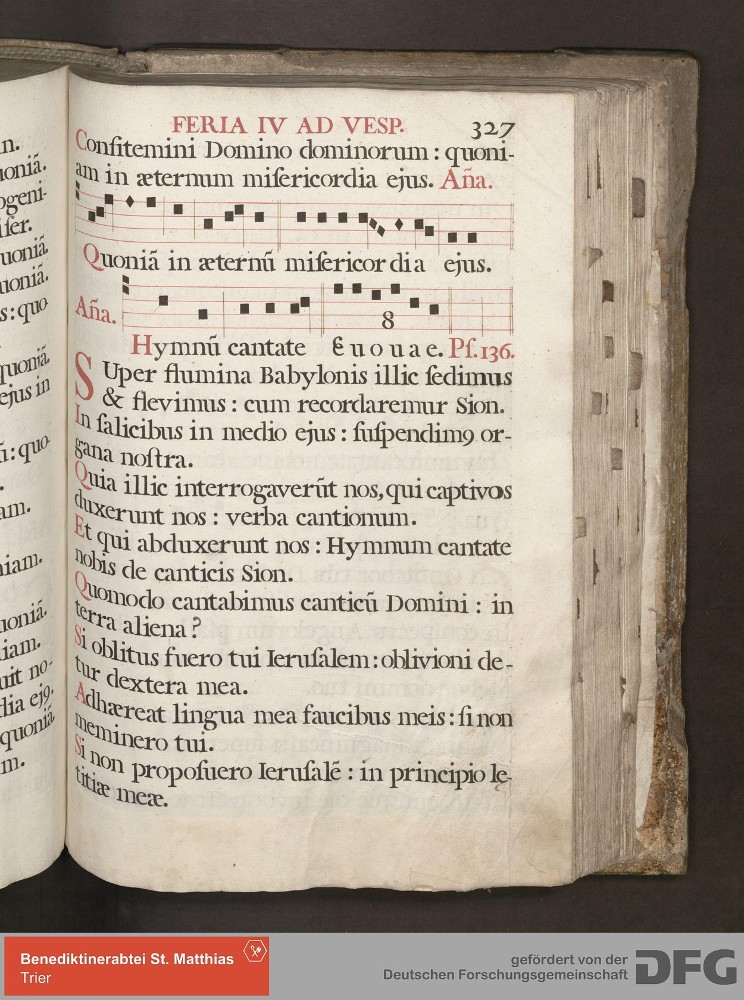 n.
FERIA IV AD VESP. 327
Confitemini Domino dominorum : quoni-
am in æternum miſericordia ejus. Añа.
Quoniã in æternũ miſericordia ejus.
Aña.
8
Hymnũ cantate Euouae. Pſ. 136.
SUper flumina Babylonis illic ſedimus
& flevimus : cum recordaremur Sion.
In ſalicibus in medio ejus : ſuſpendimꝰ or-
gana noſtra.
Quia illic interrogaverũt nos, qui captivos
duxerunt nos : verba cantionum.
Et qui abduxerunt nos : Hymnum cantate
nobis de canticis Sion.
Quomodo cantabimus canticũ Domini : in
terra aliena?
Si oblitus fuero tui Ieruſalem : oblivioni de-
tur dextera mea.
Adhæreat lingua mea faucibus meis : ſi non
meminero tui.
Si non propoſuero Ieruſalẽ : in principio lę-
titiæ meæ.
uoniã.
ogeni-
ſer.
uoniã.
uoniã.
s : quo
quoniã.
ejus in
ũ : quo-
am.
niam.
uoniã.
iam.
uit no-
dia ejꝰ.
quoniã
m.
Benediktinerabtei St. Matthias
Trier
gefördert von der
Deutschen Forschungsgemeinschaft
DFG